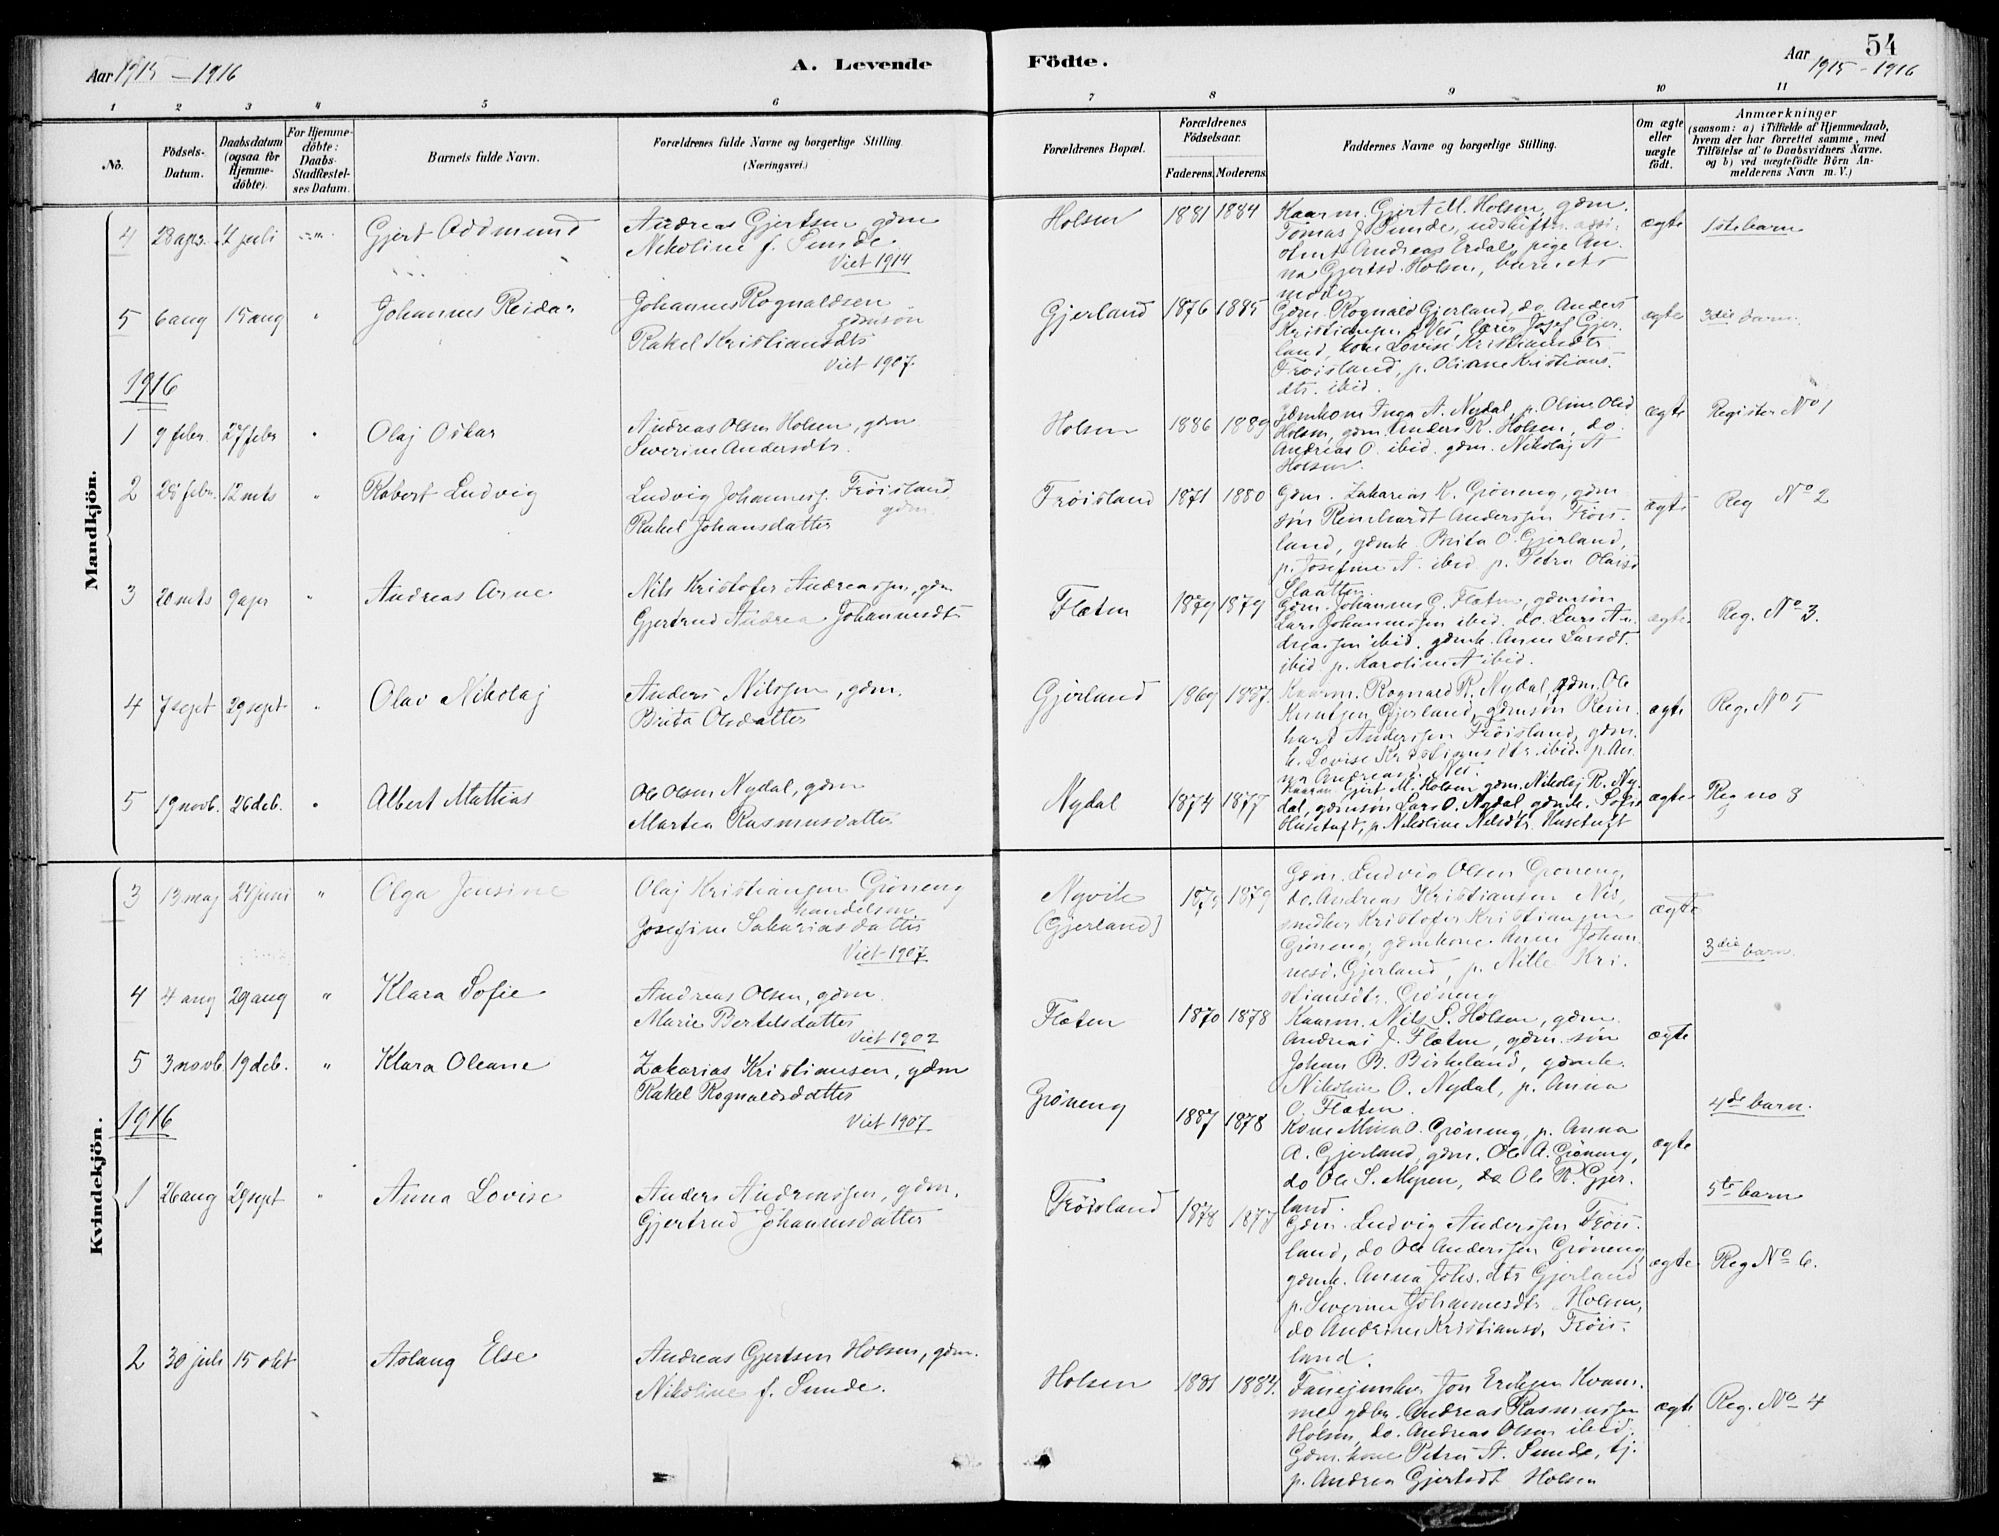 54
Aar 1915 – 1916
A. Levende
Födte.
Aar 1915 – 1916
1 2 3 4 5 6 7 8 9 10 11
No.
Födsels-Datum.
Daabsdatum (ogsaa for Hjemme-döbte).
For Hjemme-döbte: Daabs-Stadfæstel-ses Datum.
Barnets fulde Navn.
Forældrenes fulde Navne og borgerlige Stilling. (Næringsvei.)
Forældrenes Bopæl.
Forældrenes Födselsaar.
Faderens. Moderens.
Faddernes Navne og borgerlige Stilling.
Om ægte eller uægte födt.
Anmærkninger
(saasom: a) i Tilfælde af Hjemmedaab, hvem der har forrettet samme, med Tilföielse af to Daabsvidners Navne. og b) ved uægtefödte Börn An-melderens Navn m. V.)
Mandkjön.
4 28 apr. 4 juli Gjert Oddmund
Andreas Gjertsen gdm
Nikoline f. Sunde
Viet 1914
Holsen 1881 1884
Kaarm. Gjert M. Holsen, gdm.
Tomas J. Sunde, udskiftn. assi-
stent Andreas Erdal, pige An-
na Gjertsd. Holsen, barnets
moder
ægte 1ste barn
5 6 aug 15 aug " Johannes Reidar
Johannes Rognaldsen
gdmsøn
Rakel Kristiansdtr
Viet 1907.
Gjerland 1876 1885
Gdm. Rognald Gjerland, do Anders
Kristiansen Nes, lærer Josef Gjer-
land, kone Lovise Kristiansdtr
Frøisland, p. Oliane Kristians-
dtr. ibid.
ægte 3die barn.
1916
1 9 febr. 27 febr " Olaf Oskar
Andreas Olsen Holsen, gdm
Severine Andersdtr.
Holsen 1886 1889
Gdmkone Inga A. Nydal, p. Oline Olsd
Holsen, gdm. Anders R. Holsen, do.
Andreas O. ibid. gdm. Nikolaj A
Holsen.
ægte Register No 1
2 28 febr. 12 mts " Robert Ludvig
Ludvig Johanness. Frøisland
gdm.
Rakel Johansdatter
Frøisland 1871 1880
Gdm. Zakarias K. Grøneng, gdm
søn Reinhardt Anderssen Frøis-
land, gdmk. Brita O. Gjerland,
p. Josefine A. ibid. p. Petra Olaisd
Slaatten.
ægte Reg No 2
3 20 mts 9 apr " Andreas Arne
Nils Kristofer Andreassen, gdm
Gjertrud Andrea Johannesdtr
Flæten 1879 1879
Gdm. Johannes G. Flæten, gdmsøn
Lars Johannessen ibid. do. Lars An-
dreassen ibid. gdmk. Anne Larsdt.
ibid. p. Karoline A ibid.
ægte Reg. No 3.
4 7 sept 29 sept " Olav Nikolaj
Anders Nilssen, gdm.
Brita Olsdatter
Gjerland 1869 1887.
Kaarm. Rognald R. Nydal, gdm. Ole
Knutsen Gjerland, gdmsøn Rein-
hard Anderssen Frøisland, gdm.
k. Lovise Kristiansdtr ibid. p. An-
na Andreasd. Nes.
ægte Reg. No 5
5 19 novb. 26 deb. " Albert Mattias
Ole Olsen Nydal, gdm
Martea Rasmusdatter
Nydal 1874 1877
Kaarm. Gjert M. Holsen gdm. Nikolaj R. Ny-
dal, gdmsøn Lars O. Nydal, gdmk. Sofie
Husetuft, p. Nikoline Nilsdtr. Husetuft
ægte Reg no 8
Kvindekjön.
3 13 maj 24 juni " Olga Jensine
Olaj Kristiansen Grøneng
handelsm
Josefine Sakariasdatter
Viet 1907
Nyvik (Gjerland) 1879 1879
Gdm. Ludvig Olsen Grøneng,
do. Andreas Kristiansen Nes,
smdker Kristofer Kristiansen
Grøneng, gdmkone Anne Johan-
nesd. Gjerland, p. Nille Kri-
stiansdtr. Grøneng
ægte 3die barn.
4 4 aug 29 aug " Klara Sofie
Andreas Olsen, gdm.
Marie Bertelsdatter
Viet 1902
Flæten 1870 1878
Kaarm. Nils S. Holsen, gdm.
Andreas J. Flæten, gdm. søn
Johan B. Birkeland, gdmk.
Nikoline O. Nydal, p. Anna
O. Flæten.
ægte 4de barn.
5 3 novb. 19 deb. " Klara Oleane
Zakarias Kristiansen, gdm
Rakel Rognaldsdatter
Viet 1907
Grøneng 1887 1878
Kone Mina O. Grøneng, p. Anna
A. Gjerland, gdm. Ole A. Grøneng,
do Ole S. Mypen, do Ole R. Gjer-
land.
ægte 5te barn
1916
1 26 aug 29 sept " Anna Lovise
Anders Andreassen, gdm.
Gjertrud Johannesdatter
Frøisland 1878 1877
Gdm. Ludvig Anderssen Frøis-
land, do Ole Anderssen Grøneng,
gdmk. Anna Johs. dtr Gjerland
p. Severine Johannesdtr Holsen,
do Andrine Kristiansd. Frøis-
land.
ægte Reg No 6.
2 30 juli 15 okt Aslaug Else
Andreas Gjertsen Holsen, gdm.
Nikoline f. Sunde.
Holsen 1881 1884.
Fanejunker Jon Eriksen Kvam-
me, gdbr. Andreas Rasmussen
Holsen, do. Andreas Olsen ibid.
Gdm. kone Petra A. Sunde, tj.
p. Andrea Gjertsdt Holsen
ægte Reg. No 4